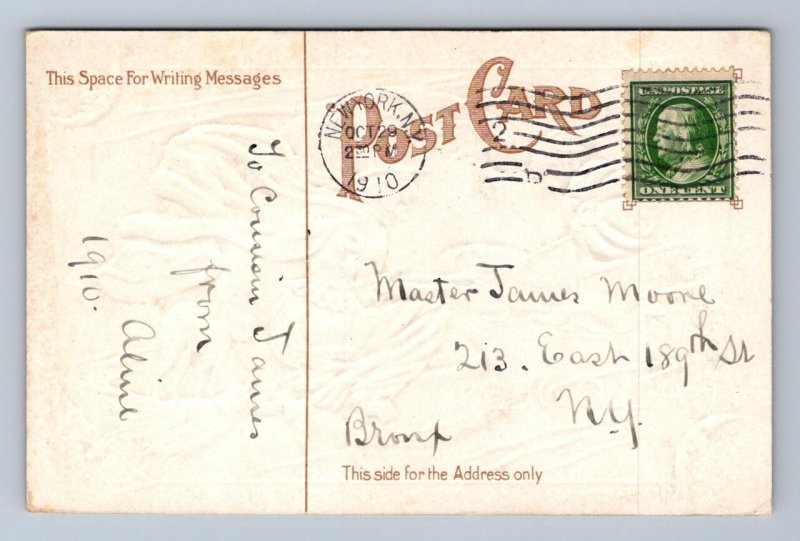 This Space For Writing Messages
POST CARD
NEW YORK, N.Y.
OCT 29
2 30 PM
1910
2
D
U.S. POSTAGE
ONE CENT
To Cousin James
from
Aline
1910.
Master James Moore
213. East 189th St
N.Y.
Bronx
This side for the Address only